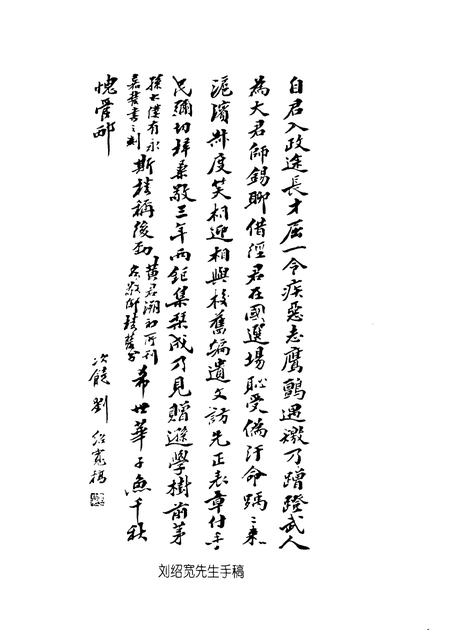 自君入政途長才屈一令疾惡志鷹鸇遇繳乃蹭蹬武人
為大君師錫聊借徑君在國選場恥受偽汙命踽〻來
滬濱叔度笑相迎相與校舊編遺文訪先正表章付手
民彌切梓桑敬三年而鉅集槧成乃見贈遜學樹前茅
孫太僕有永
嘉叢書之刻
斯樓稱後勁
黃君溯初所刊
名敬鄉樓叢書
希世華子漁千秋
愧管邴
次饒劉紹寬稿
刘绍宽先生手稿